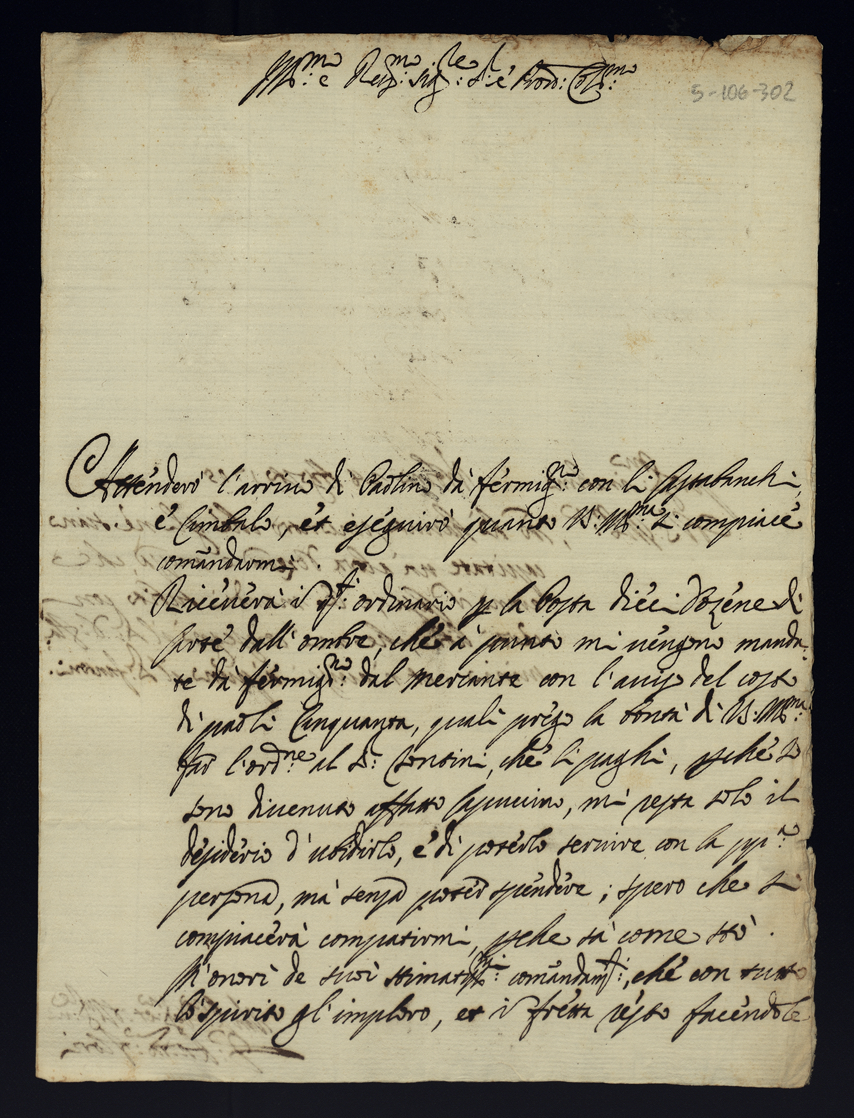 Ill:mo e Rev:mo Sig:re S:r e Pron: Col:mo
5-106-302
Attenderò l'arrivo di Paolino da fermig:no con li
è Cimbalo, et eseguirò quanto V: Ill:ma si compiace
comandarmi.
Riceverà i ordinario p la Posta dieci dozene di
dall'ombre, che à punto mi vengono manda-
te da fermig:no dal mercante con l'aviso del costo
di paoli Cinquanta, quali prego la bontà di V: Ill:ma
far l'ord:ne al S: Contini, che li paghi, pche io
sono divenuto affatto Capuccino, mi resta solo il
desiderio d'ubidirlo, è di poterlo servire con la pp:a
persona, ma senza poter spendere; spero che si
compiacerà compatirmi, pche sa come stò.
M'onori de suoi stimatis:mi comandam:ti, che con tutto
lo spirito gl'imploro, et i fretta resto facendole